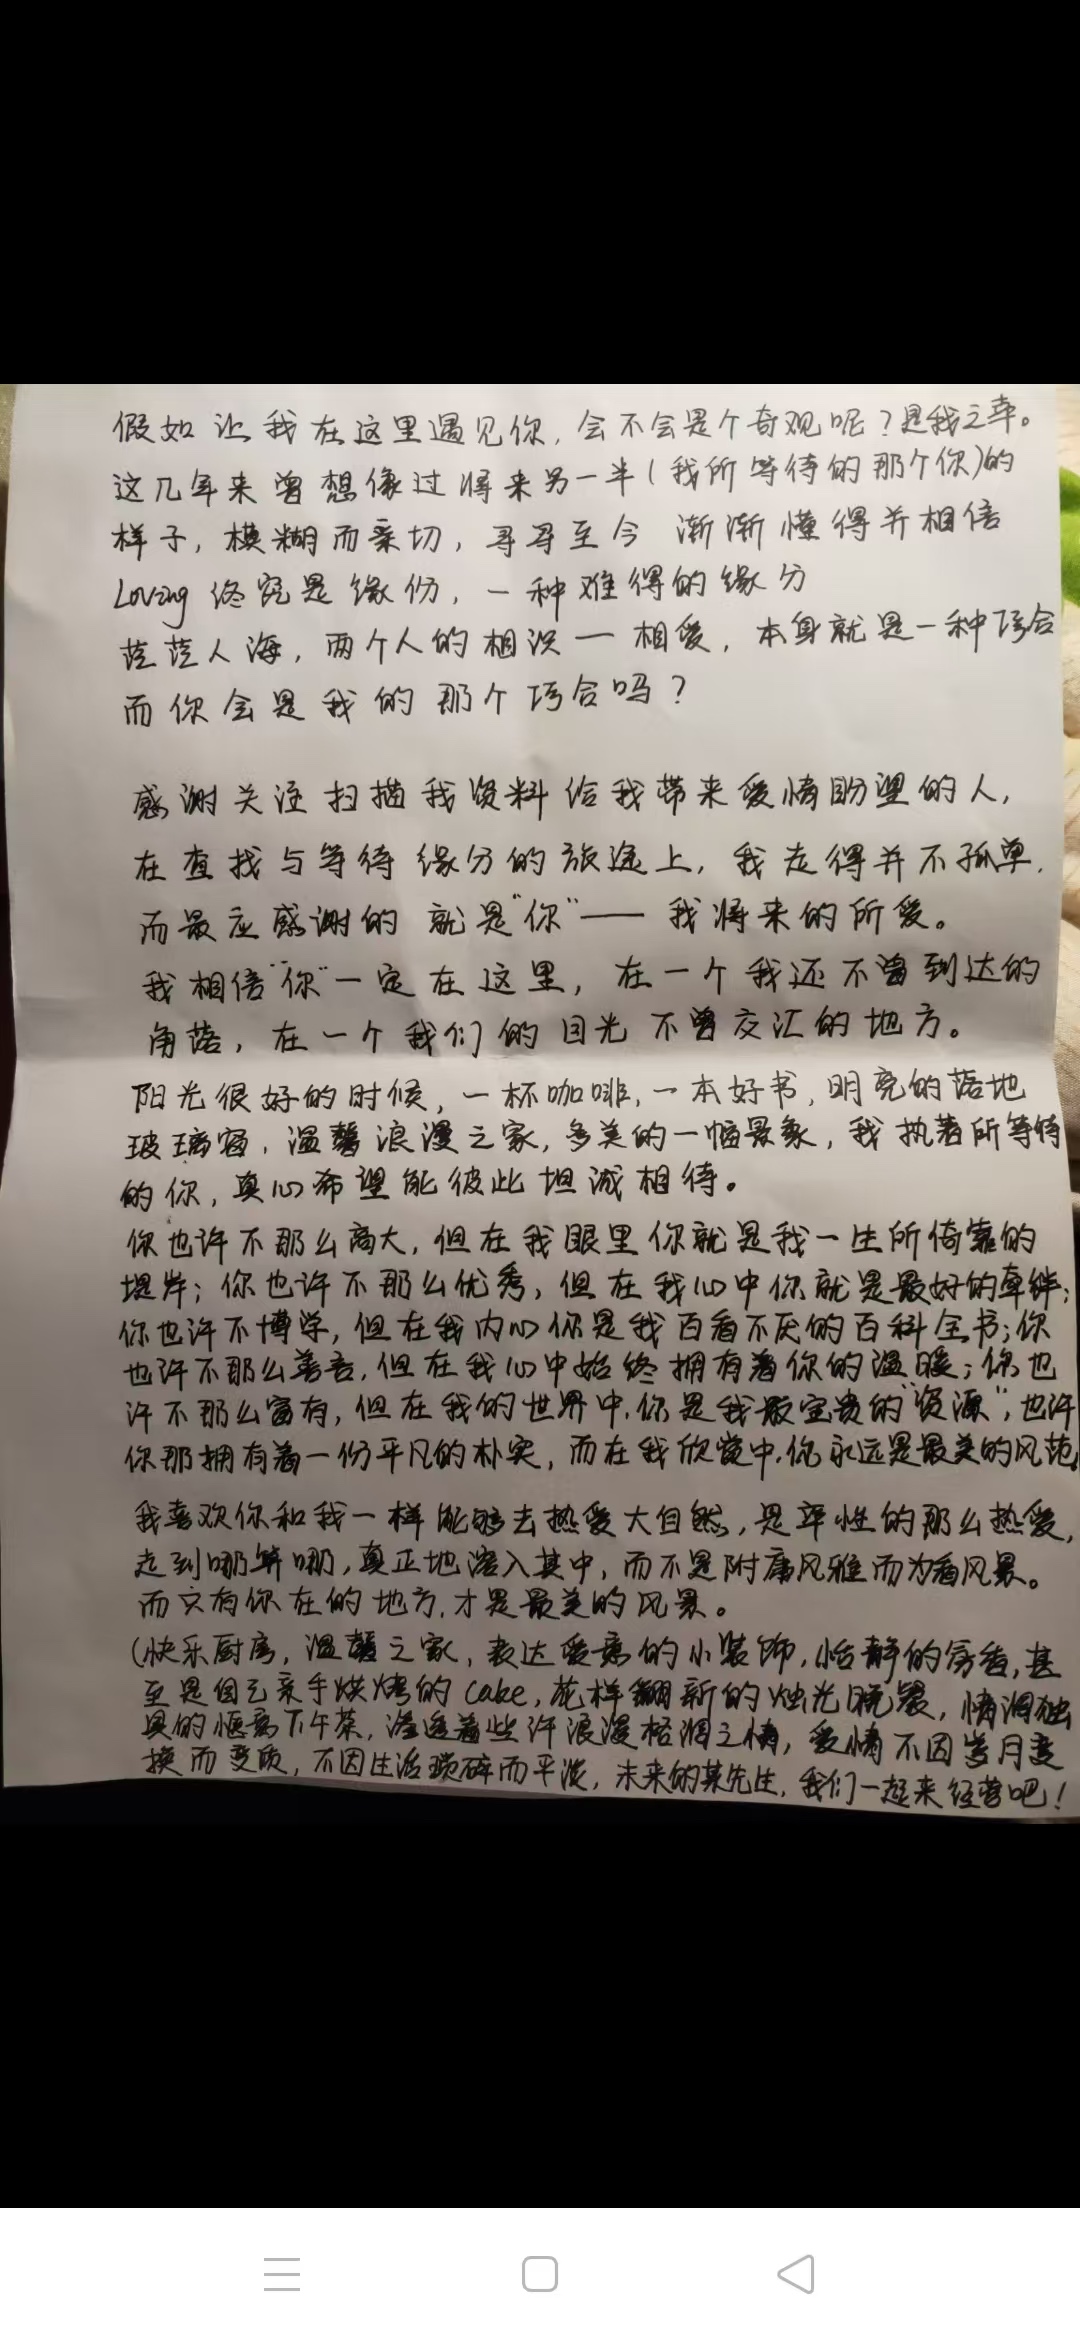 假如让我在这里遇见你，会不会是个奇观呢？是我之幸。
这几年来曾想像过将来另一半（我所等待的那个你）的
样子，模糊而亲切，寻寻至今 渐渐懂得并相信
Loving 终究是缘份，一种难得的缘分
茫茫人海，两个人的相识一相爱，本身就是一种巧合
而你会是我的那个巧合吗？
感谢关注扫描我资料给我带来爱情盼望的人，
在查找与等待缘分的旅途上，我走得并不孤单，
而最应感谢的 就是“你”——我将来的所爱。
我相信“你”一定在这里，在一个我还不曾到达的
角落，在一个我们的目光不曾交汇的地方。
阳光很好的时候，一杯咖啡，一本好书，明亮的落地
玻璃窗，温馨浪漫之家，多美的一幅景象，我执著所等待
的你，真心希望能彼此坦诚相待。
你也许不那么高大，但在我眼里你就是我一生所倚靠的
堤岸；你也许不那么优秀，但在我心中你就是最好的牵绊；
你也许不博学，但在我内心你是我百看不厌的百科全书；你
也许不那么善言，但在我心中始终拥有着你的温暖；你也
许不那么富有，但在我的世界中，你是我最宝贵的“资源”；也许
你那拥有着一份平凡的朴实，而在我欣赏中，你永远是最美的风范。
我喜欢你和我一样能够去热爱大自然，是率性的那么热爱，
走到哪算哪，真正地溶入其中，而不是附庸风雅而为看风景。
而只有你在的地方，才是最美的风景。
（快乐厨房，温馨之家，表达爱意的小装饰，恬静的房香，甚
至是自己亲手烘烤的cake，花样翻新的烛光晚餐，情调独
具的惬意下午茶，渗透着些许浪漫格调之情，爱情不因岁月变
换而变质，不因生活琐碎而平淡，未来的某先生，我们一起来经营吧！